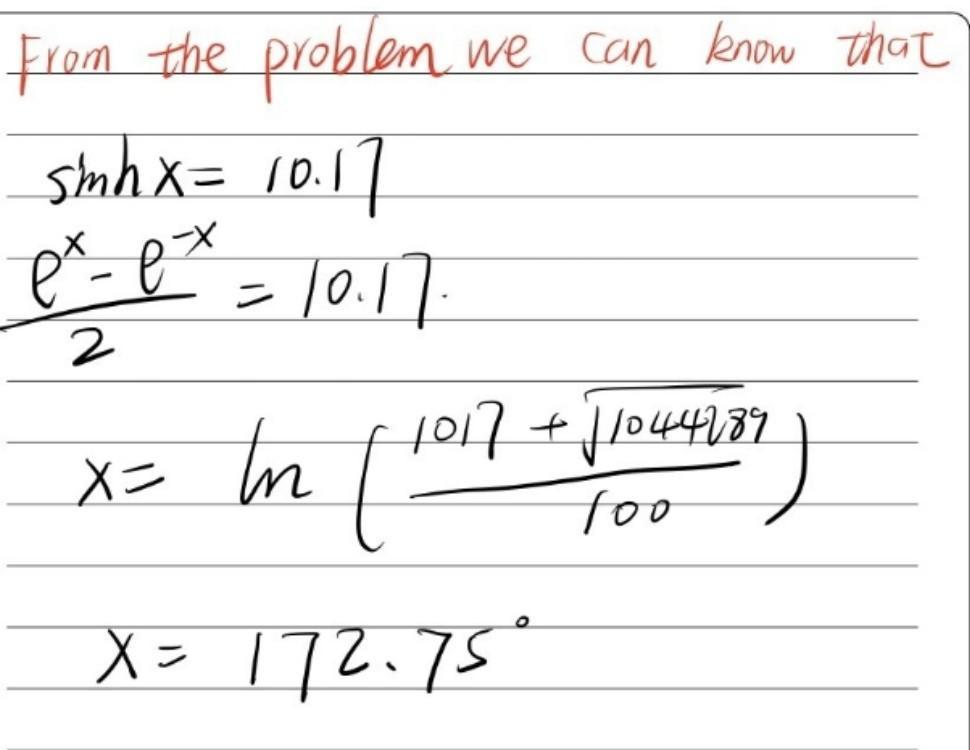 From the problem we can know that
sinh x = 10.17
e^x - e^-x / 2 = 10.17.
x = ln ( 1017 + √1044289 / 100 )
x = 172.75°